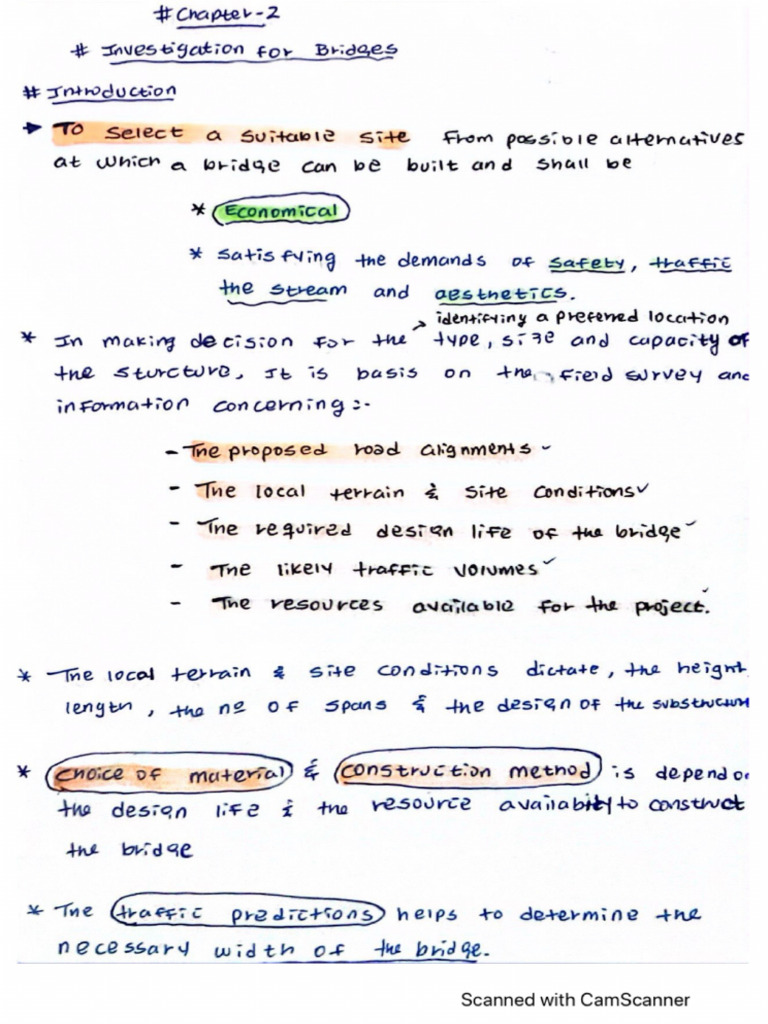 # Chapter-2
# Investigation for Bridges
# Introduction
➤ To select a suitable site from possible alternatives
at which a bridge can be built and shall be
* Economical
* satisfying the demands of safety, traffic
the stream and aesthetics.
identifying a preferred location
* In making decision for the type, size and capacity of
the sturcture, It is basis on the field survey and
information concerning :-
- The proposed road alignments ✓
- The local terrain & site conditions ✓
- The required design life of the bridge ✓
- The likely traffic volumes ✓
- The resources available for the project. ✓
* The local terrain & site conditions dictate, the height
length, the no of spans & the design of the substructure
* choice of material & construction method is depend on
the design life & the resource availability to construct
the bridge
* The traffic predictions helps to determine the
necessary width of the bridge.
Scanned with CamScanner